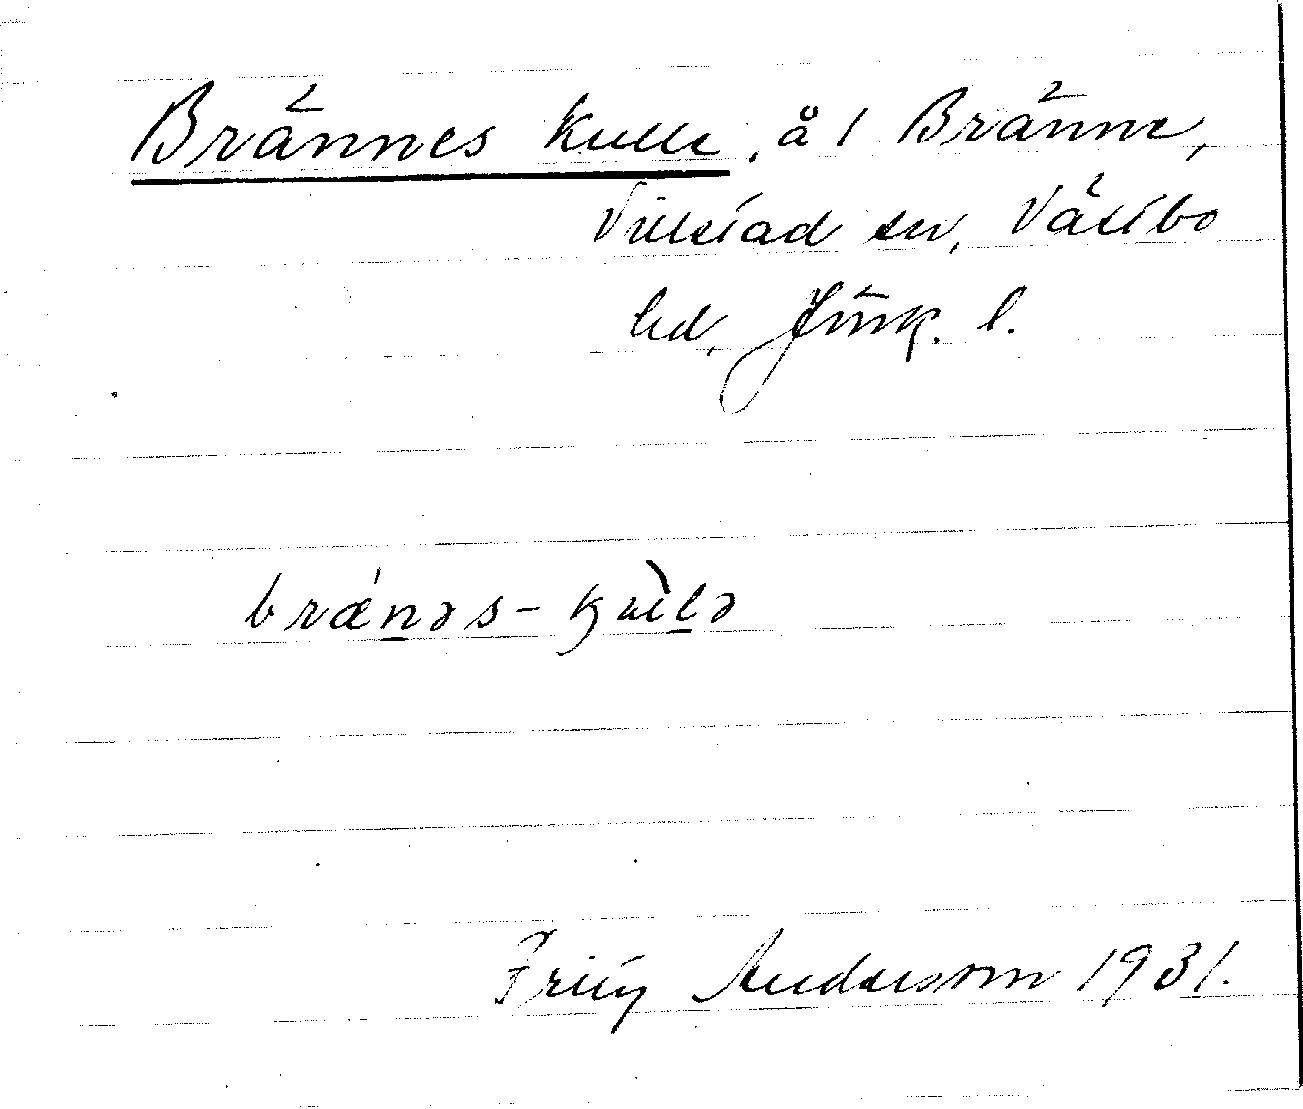 Brännes kulle, å 1 Bränne,
Villstad sn, Västbo
hd, Jönk. l.
brǽnəs-kùlə
Fritz Andersson 1931.